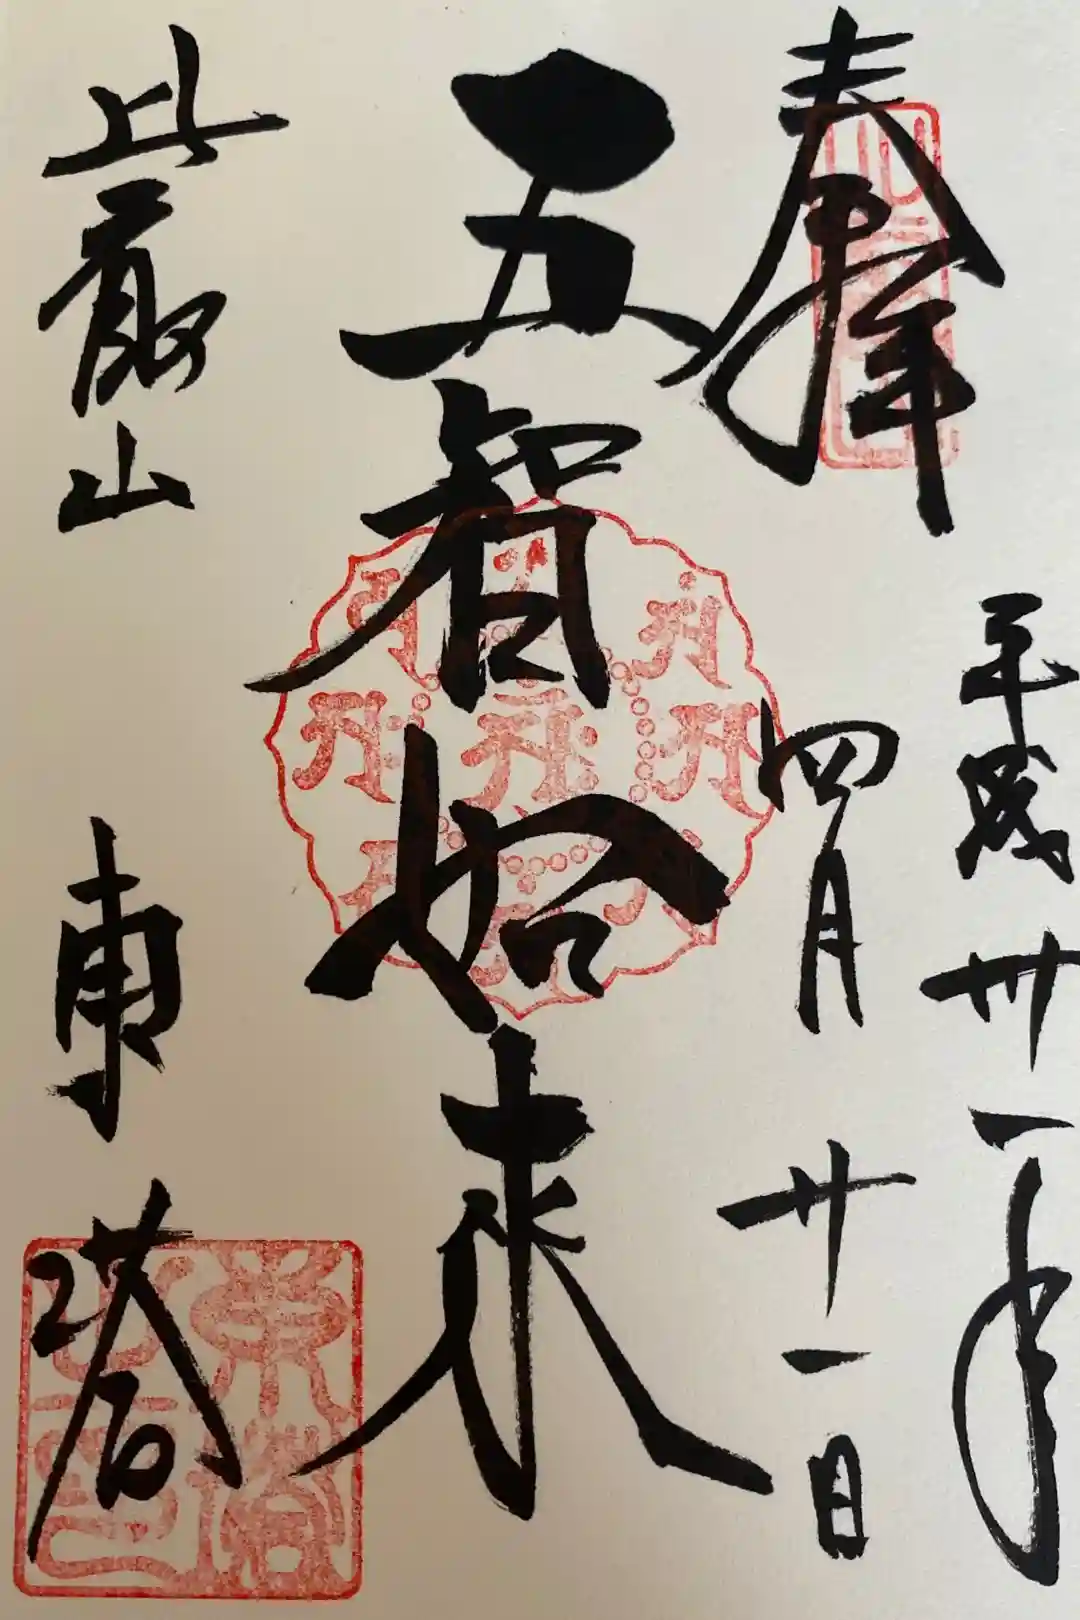 奉拝
平成卅一年
四月廿一日
五智如来
比叡山
東塔